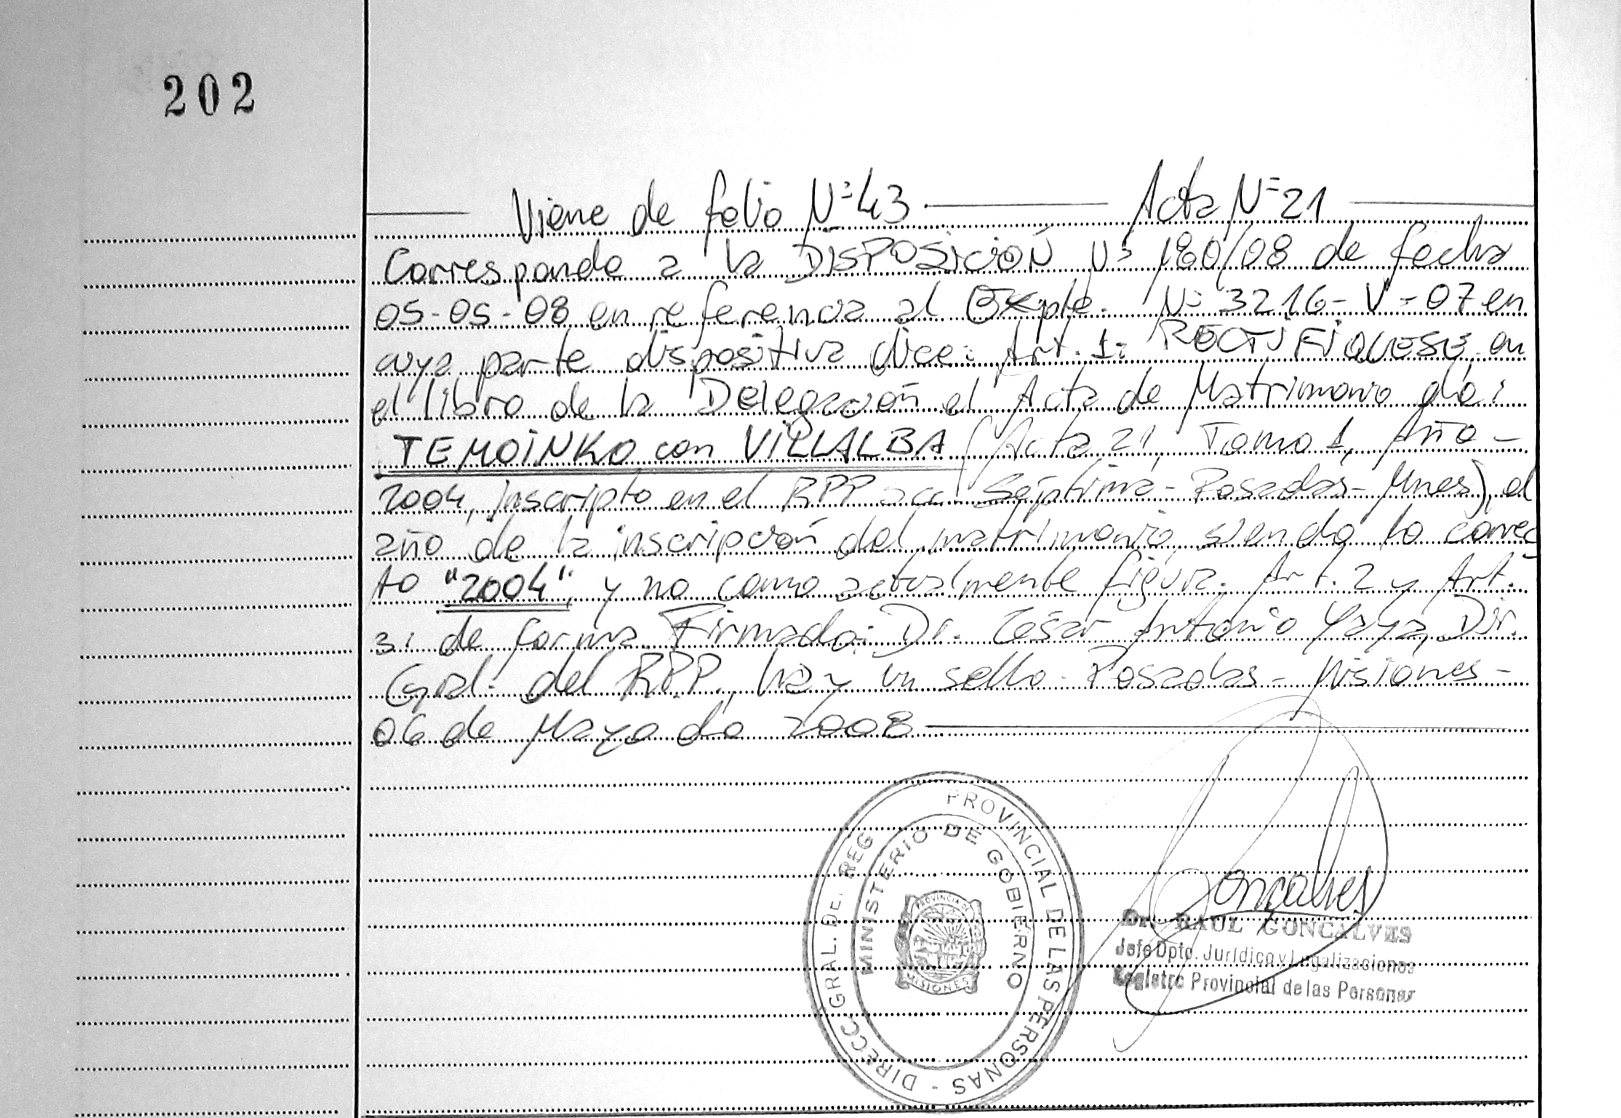 202
Viene de folio Nº 43 Acta Nº 21
Corresponde a la DISPOSICIÓN Nº 180/08 de fecha
05-05-08 en referencia al Expte. Nº 3216-V-07 en
cuya parte dispositiva dice: Art. 1: RECTIFIQUESE en
el libro de la Delegación el Acta de Matrimonio de:
TEMOINKO con VILLALBA (Acta 21, Tomo 1, Año -
2004, inscripto en el RPP secc. Séptima - Posadas - Mnes), el
año de la inscripción del matrimonio, siendo lo correc
to "2004", y no como actualmente figura. Art. 2 y Art.
3: de forma Firmado: Dr. César Antonio Yaya, Dir.
Gral. del R.P.P., hay un sello - Posadas - Misiones -
06 de Mayo de 2008
DIRECC. GRAL. DEL REG PROVINCIAL DE LAS PERSONAS -
MINISTERIO DE GOBIERNO
PROVINCIA DE
MISIONES
Gonçalves
Dr. RAUL GONCALVES
Jefe Dpto. Jurídico y Legalizaciones
Registro Provincial de las Personas